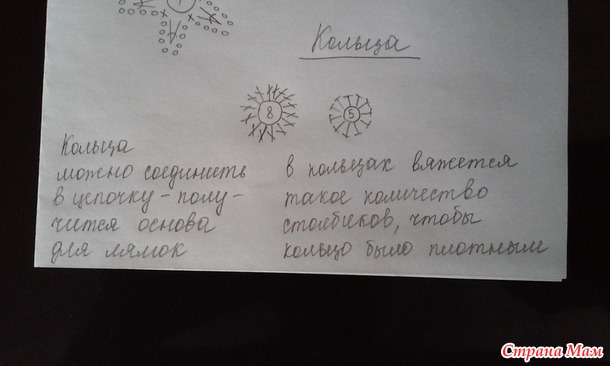 Кольца
8
5
Кольца
можно соединить
в цепочку - полу-
чится основа
для лямок
в кольцах вяжется
такое количество
столбиков, чтобы
кольцо было плотным
Страна Мам